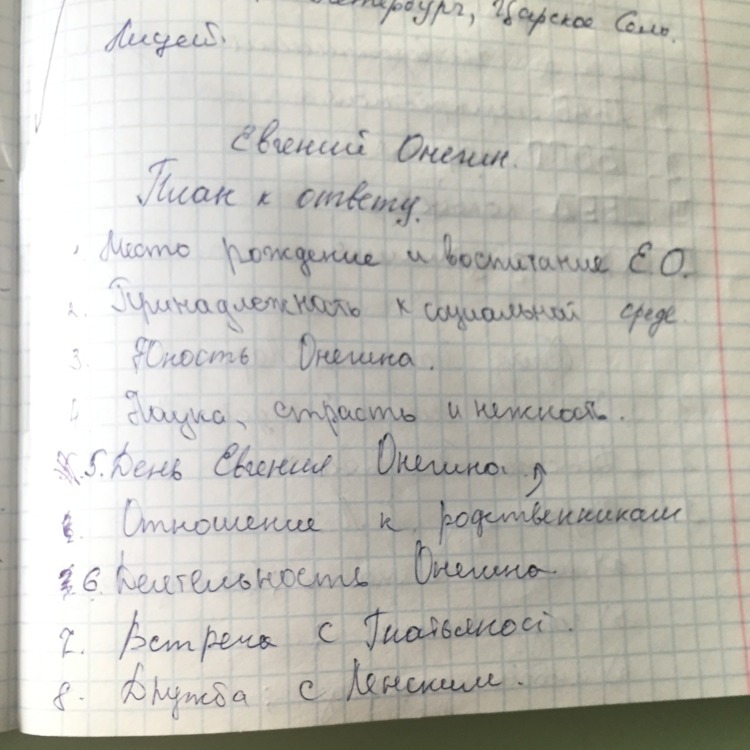 Петербург, Царское Село.
Лицей.
Евгений Онегин.
План к ответу.
Место рождение и воспитание Е О.
2. Принадлежнать к социальной среде
3. Юность Онегина.
4 Наука, страсть и нежность.
5. День Евгения Онегина.
Отношение к родственникам
6. Деятельность Онегина
7. Встреча с Татьяной.
8. Дружба с Ленским.